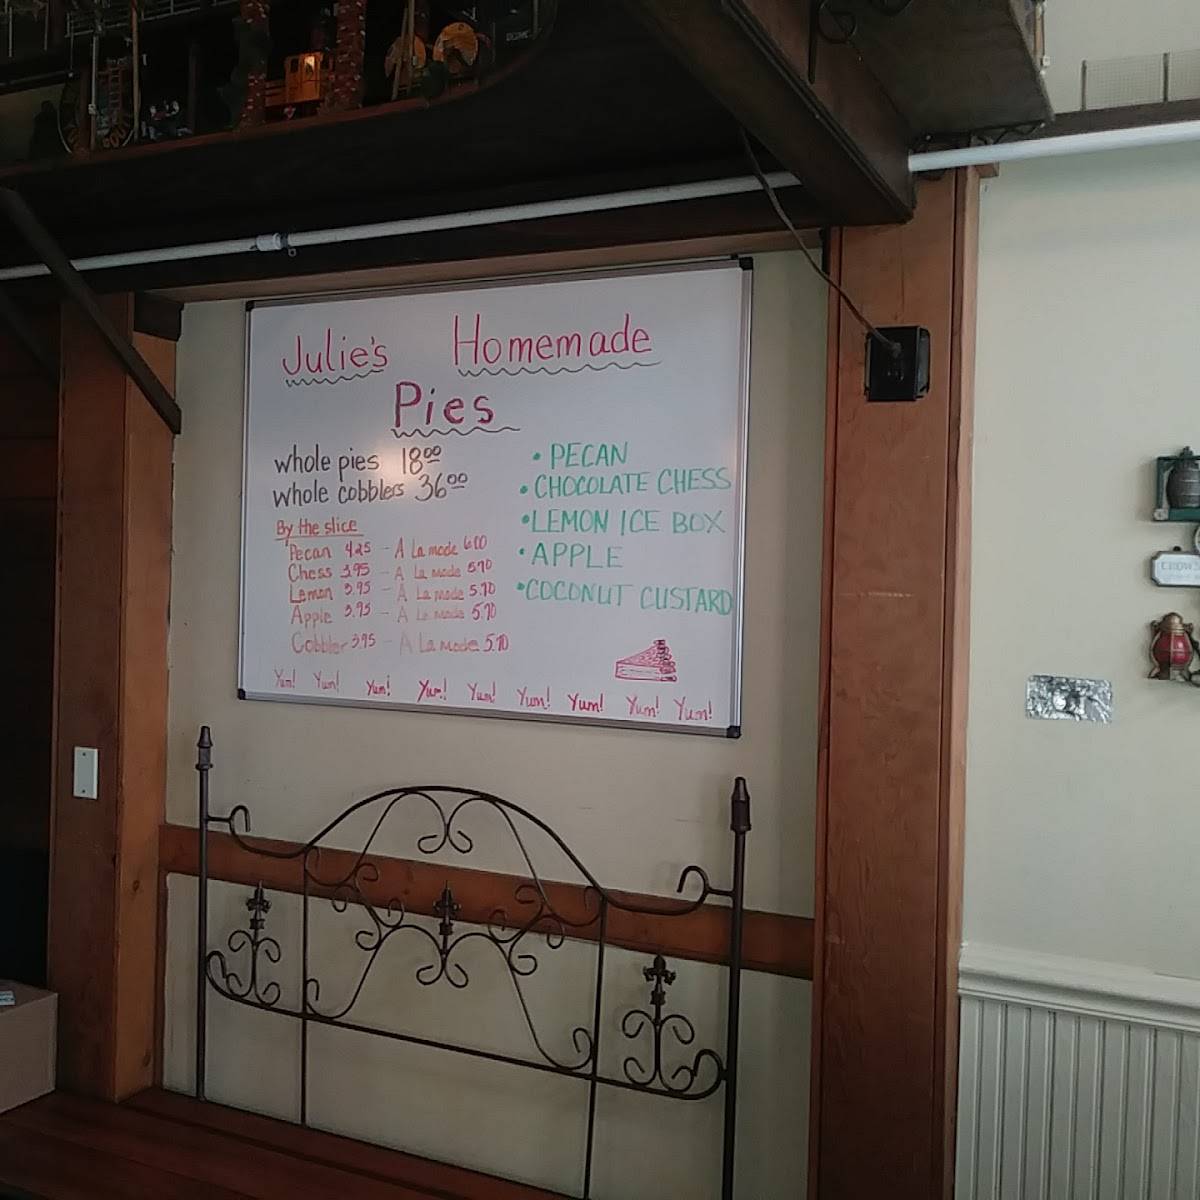 Julie's Homemade
Pies
whole pies 18⁰⁰
whole cobblers 36⁰⁰
By the slice
Pecan 4.25 - A La mode 6.00
Chess 3.95 - A La mode 5.70
Lemon 3.95 - A La mode 5.70
Apple 3.95 - A La mode 5.70
Cobbler 3.95 - A La mode 5.70
• PECAN
• CHOCOLATE CHESS
• LEMON ICE BOX
• APPLE
• COCONUT CUSTARD
Yum! Yum! Yum! Yum! Yum! Yum! Yum! Yum! Yum!